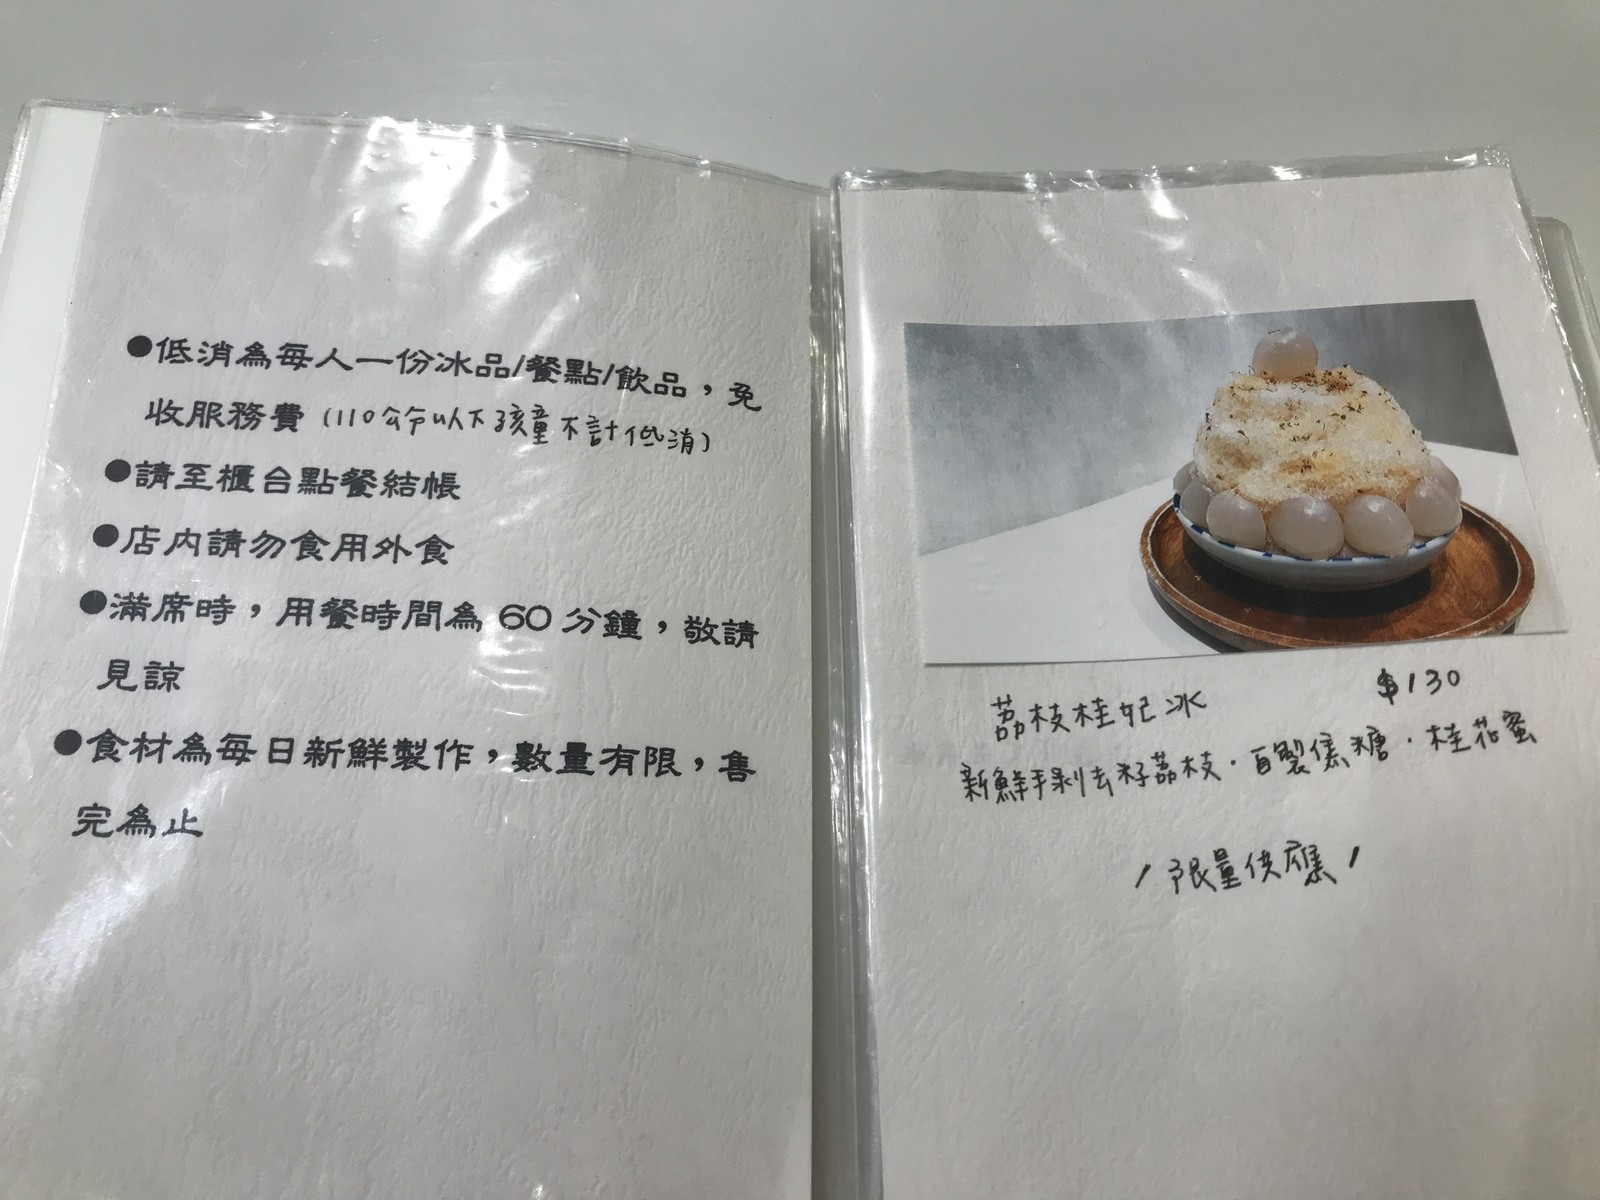 ●低消為每人一份冰品/餐點/飲品，免
收服務費(110公分以下孩童不計低消)
●請至櫃台點餐結帳
●店內請勿食用外食
●滿席時，用餐時間為 60 分鐘，敬請
見諒
●食材為每日新鮮製作，數量有限，售
完為止
荔枝桂妃冰 $130
新鮮手剥去籽荔枝．自製焦糖．桂花蜜
/ 限量供應 /